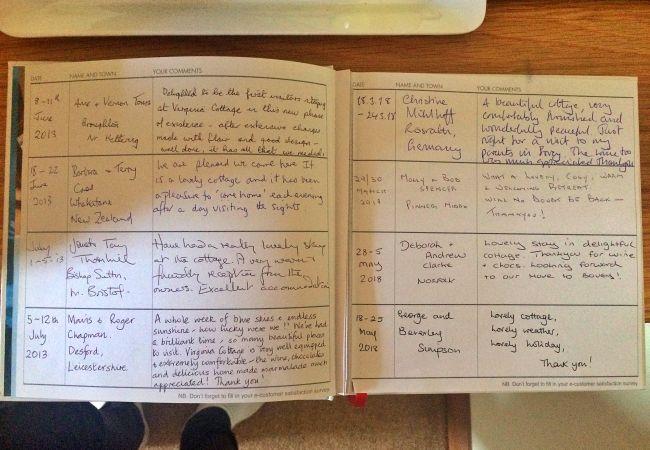 DATE NAME AND TOWN YOUR COMMENTS
8-11th June 2013
Ann + Vernon
Broughton
Nr Kettering
Delighted to be the first visitors staying
at Virginia Cottage in this new phase
of existence - after extensive changes
made with flair and good design -
well done, it has all that we needed.
18-22
June
2013
Barbara + Terry
Whakatane
New Zealand
We are pleased we came here. It
is a lovely cottage and it has been
a pleasure to 'come home' each evening
after a day visiting the sights
July
1-5-13
Tony
Thornhill
Bishop Sutton,
Nr. Bristol.
Have had a really lovely stay
at the cottage. A very warm +
friendly reception from the
owners. Excellent accommodation
5-12th
July
2013
Mavis & Roger
Chapman.
Desford,
Leicestershire.
A whole week of blue skies & endless
sunshine - how lucky were we!! We've had
a brilliant time - so many beautiful places
to visit. Virginia Cottage is very well equipped
& extremely comfortable - the wine, chocolates
and delicious home made marmalade much
appreciated! Thank you!
NB. Don't forget to fill in your e-customer satisfaction survey
DATE NAME AND TOWN YOUR COMMENTS
18.3.18
- 24.3.18
Christine
Germany
A beautiful cottage, very
comfortably furnished and
wonderfully peaceful. Just
right for a visit to my
parents in
was much appreciated. Thank you
24/30
MARCH
2018
MOLLY + BOB
SPENCER
PINNER MIDDX
WHAT A LOVELY, COSY, WARM
& WELCOMING RETREAT.
WILL NO DOUBT BE BACK -
THANKYOU!
28-5
may
2018
Deborah +
Andrew
Clarke
Norfolk
Lovely stay in delightful
cottage. Thankyou for wine
+ chocs. Looking forward
to our move to Bovey!
18-25
May
2018
George and
Beverley
Simpson
Lovely cottage,
Lovely weather,
Lovely holiday,
Thank you!
NB. Don't forget to fill in your e-customer satisfaction survey